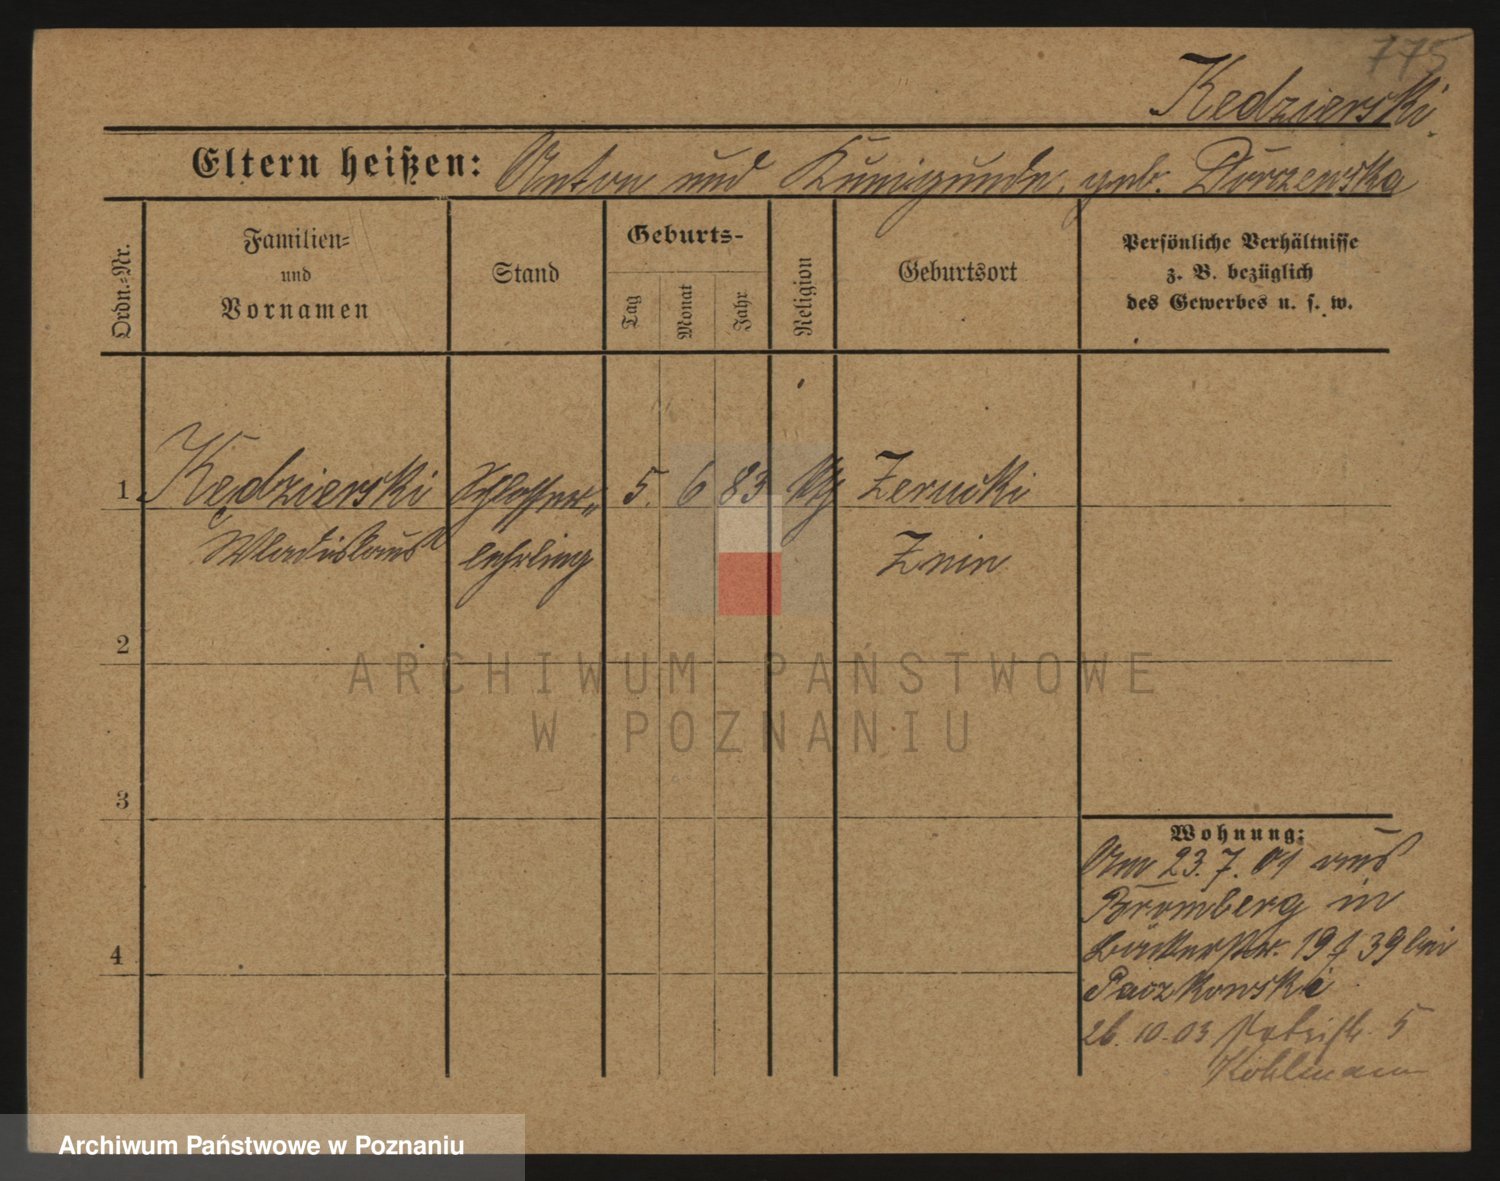 775
Kedzierski.
Eltern heißen: Anton und Kunigunde, geb. Dorczewska
Ordn.-Nr.
Familien-
und
Vornamen
Stand
Geburts-
Tag
Monat
Jahr
Religion
Geburtsort
Persönliche Verhältnisse
z. B. bezüglich
des Gewerbes u. s. w.
1 Kędzierski Schlosser- 5. 6 83 Zernicki
Wladislaus lehrling Znin
2
3
4
Wohnung:
Am 23.7.01 aus
Bromberg in
Bäckerstr. 19 39 bei
Paczkowski
26.10.03 Petristr. 5
Kohlmann
ARCHIWUM PAŃSTWOWE
W POZNANIU
Archiwum Państwowe w Poznaniu